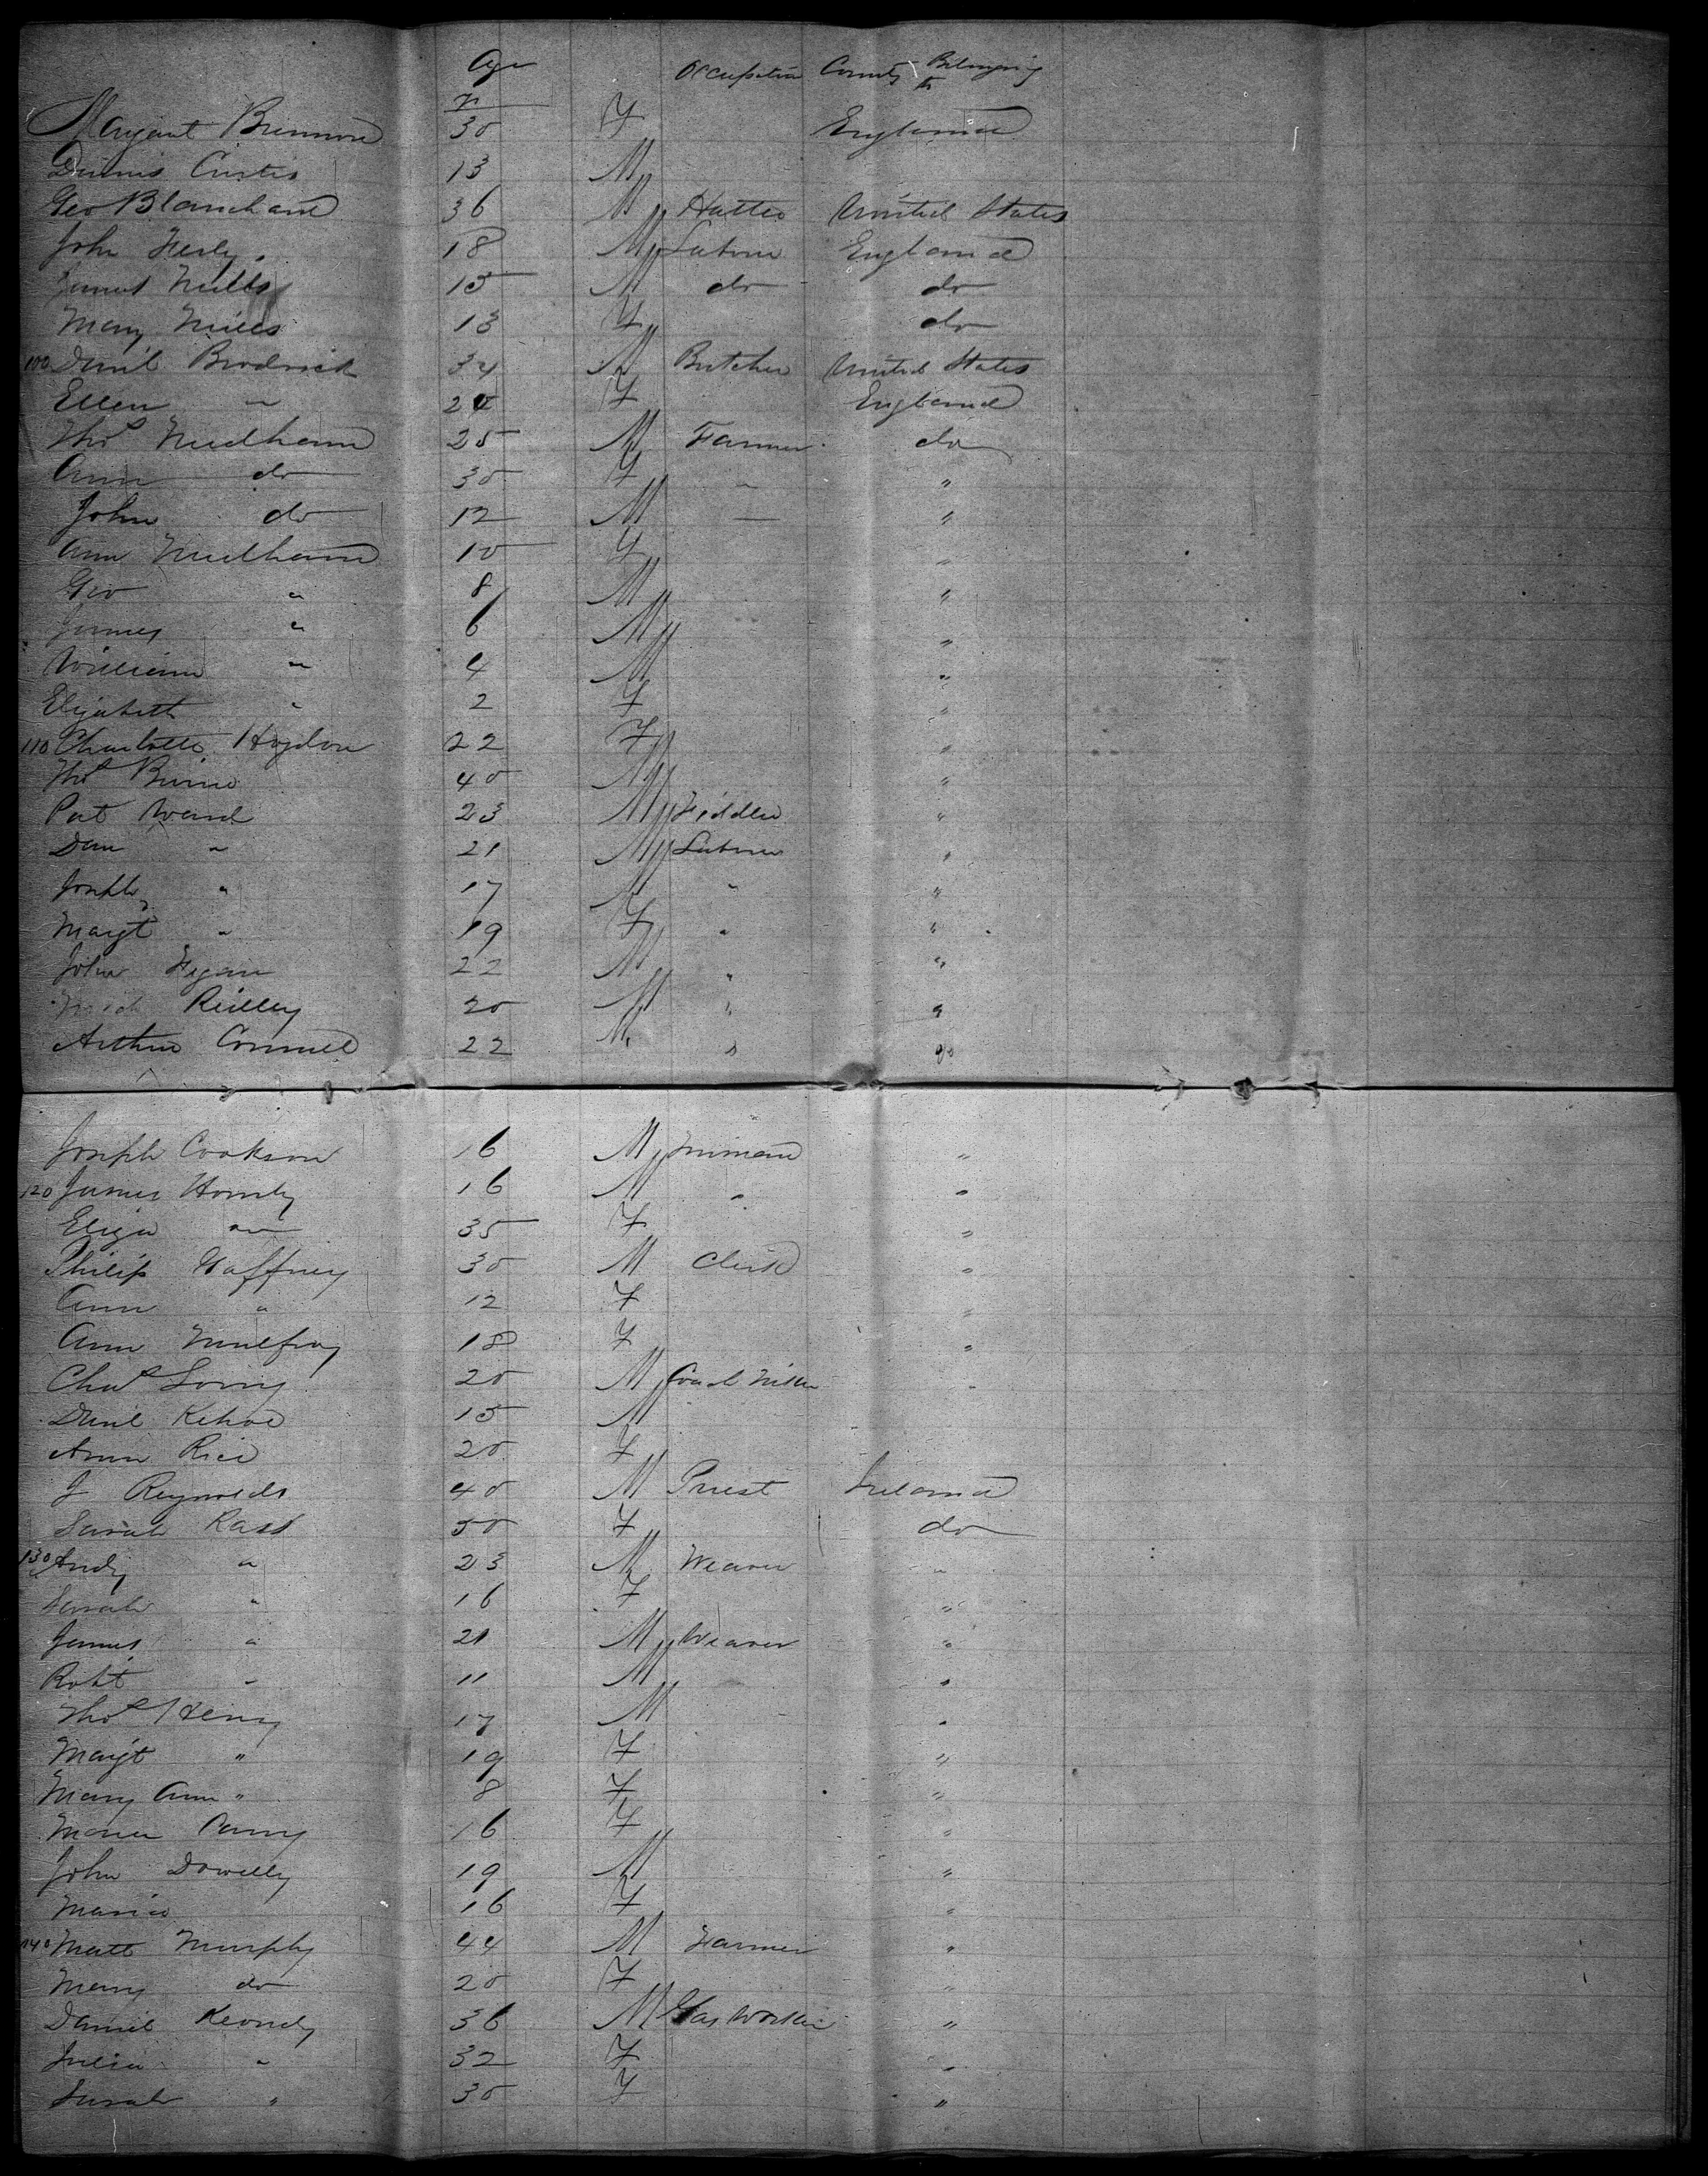 Age Occupation Country Belonging to
Margaret 30 F England
Dennis Curtis 13 M
Geo Blanchard 36 M Hatter United States
John 18 M Labourer England
James Mills 15 M do do
Mary Mills 13 F do
100 Danl Brodrick 34 M Butcher United States
Ellen " 24 F England
Thos Needham 25 M Farmer do
Ann do 30 F - "
John do 12 M - "
Ann Needham 10 F "
Geo " 8 M "
James " 6 M "
William " 4 M "
Elizabeth " 2 F "
110 Charlotte Hogdon 22 F "
Thos 40 M "
Pat Ward 23 M Fiddler "
Dan " 21 M Labourer "
Joseph " 17 M " "
Margt " 19 F " "
John Fegan 22 M " "
Mich Reilley 20 M " "
Arthur Connell 22 M " "
Joseph Cookson 16 M "
120 James Hornby 16 M " "
Eliza " 35 F "
Philip Gaffney 30 M Clerk "
Ann " 12 F "
Ann 18 F "
Chas 20 M "
Danl Kehoe 15 M
Ann Rice 20 F
J Reynolds 40 M Priest Ireland
Sarah Kass 50 F do
130 Andy " 23 M Weaver "
Sarah " 16 F "
James " 21 M Weaver "
Robt " 11 M "
Thos Henry 17 M "
Margt " 19 F "
Mary Ann " 8 F "
Maria 16 F "
John Dowelly 19 M "
Maria 16 F "
140 Matt Murphy 44 M Farmer "
Mary do 20 F "
Daniel 36 M Gas Worker "
Julia " 32 F "
Sarah " 30 F "